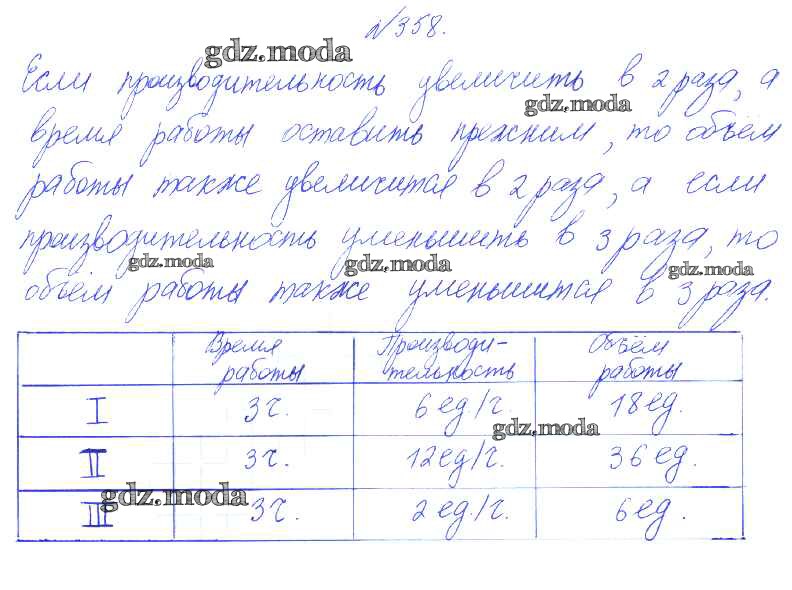 №358.
gdz.moda
Если производительность увеличить в 2 раза, а
gdz.moda
время работы оставить прежним, то объём
работы также увеличится в 2 раза, а если
производительность уменьшить в 3 раза, то
gdz.moda gdz.moda gdz.moda
объём работы также уменьшится в 3 раза.
Время работы Производи-тельность Объём работы
I 3 ч. 6 ед./ч. 18 ед.
gdz.moda
II 3 ч. 12 ед/ч. 36 ед.
gdz.moda
III 3 ч. 2 ед./ч. 6 ед.